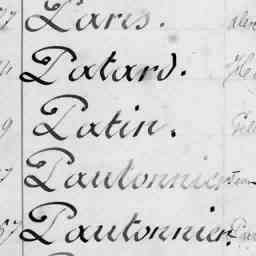 Paris.
Patard.
9 Patin.
7 Pautonnier
67 Pautonnier.